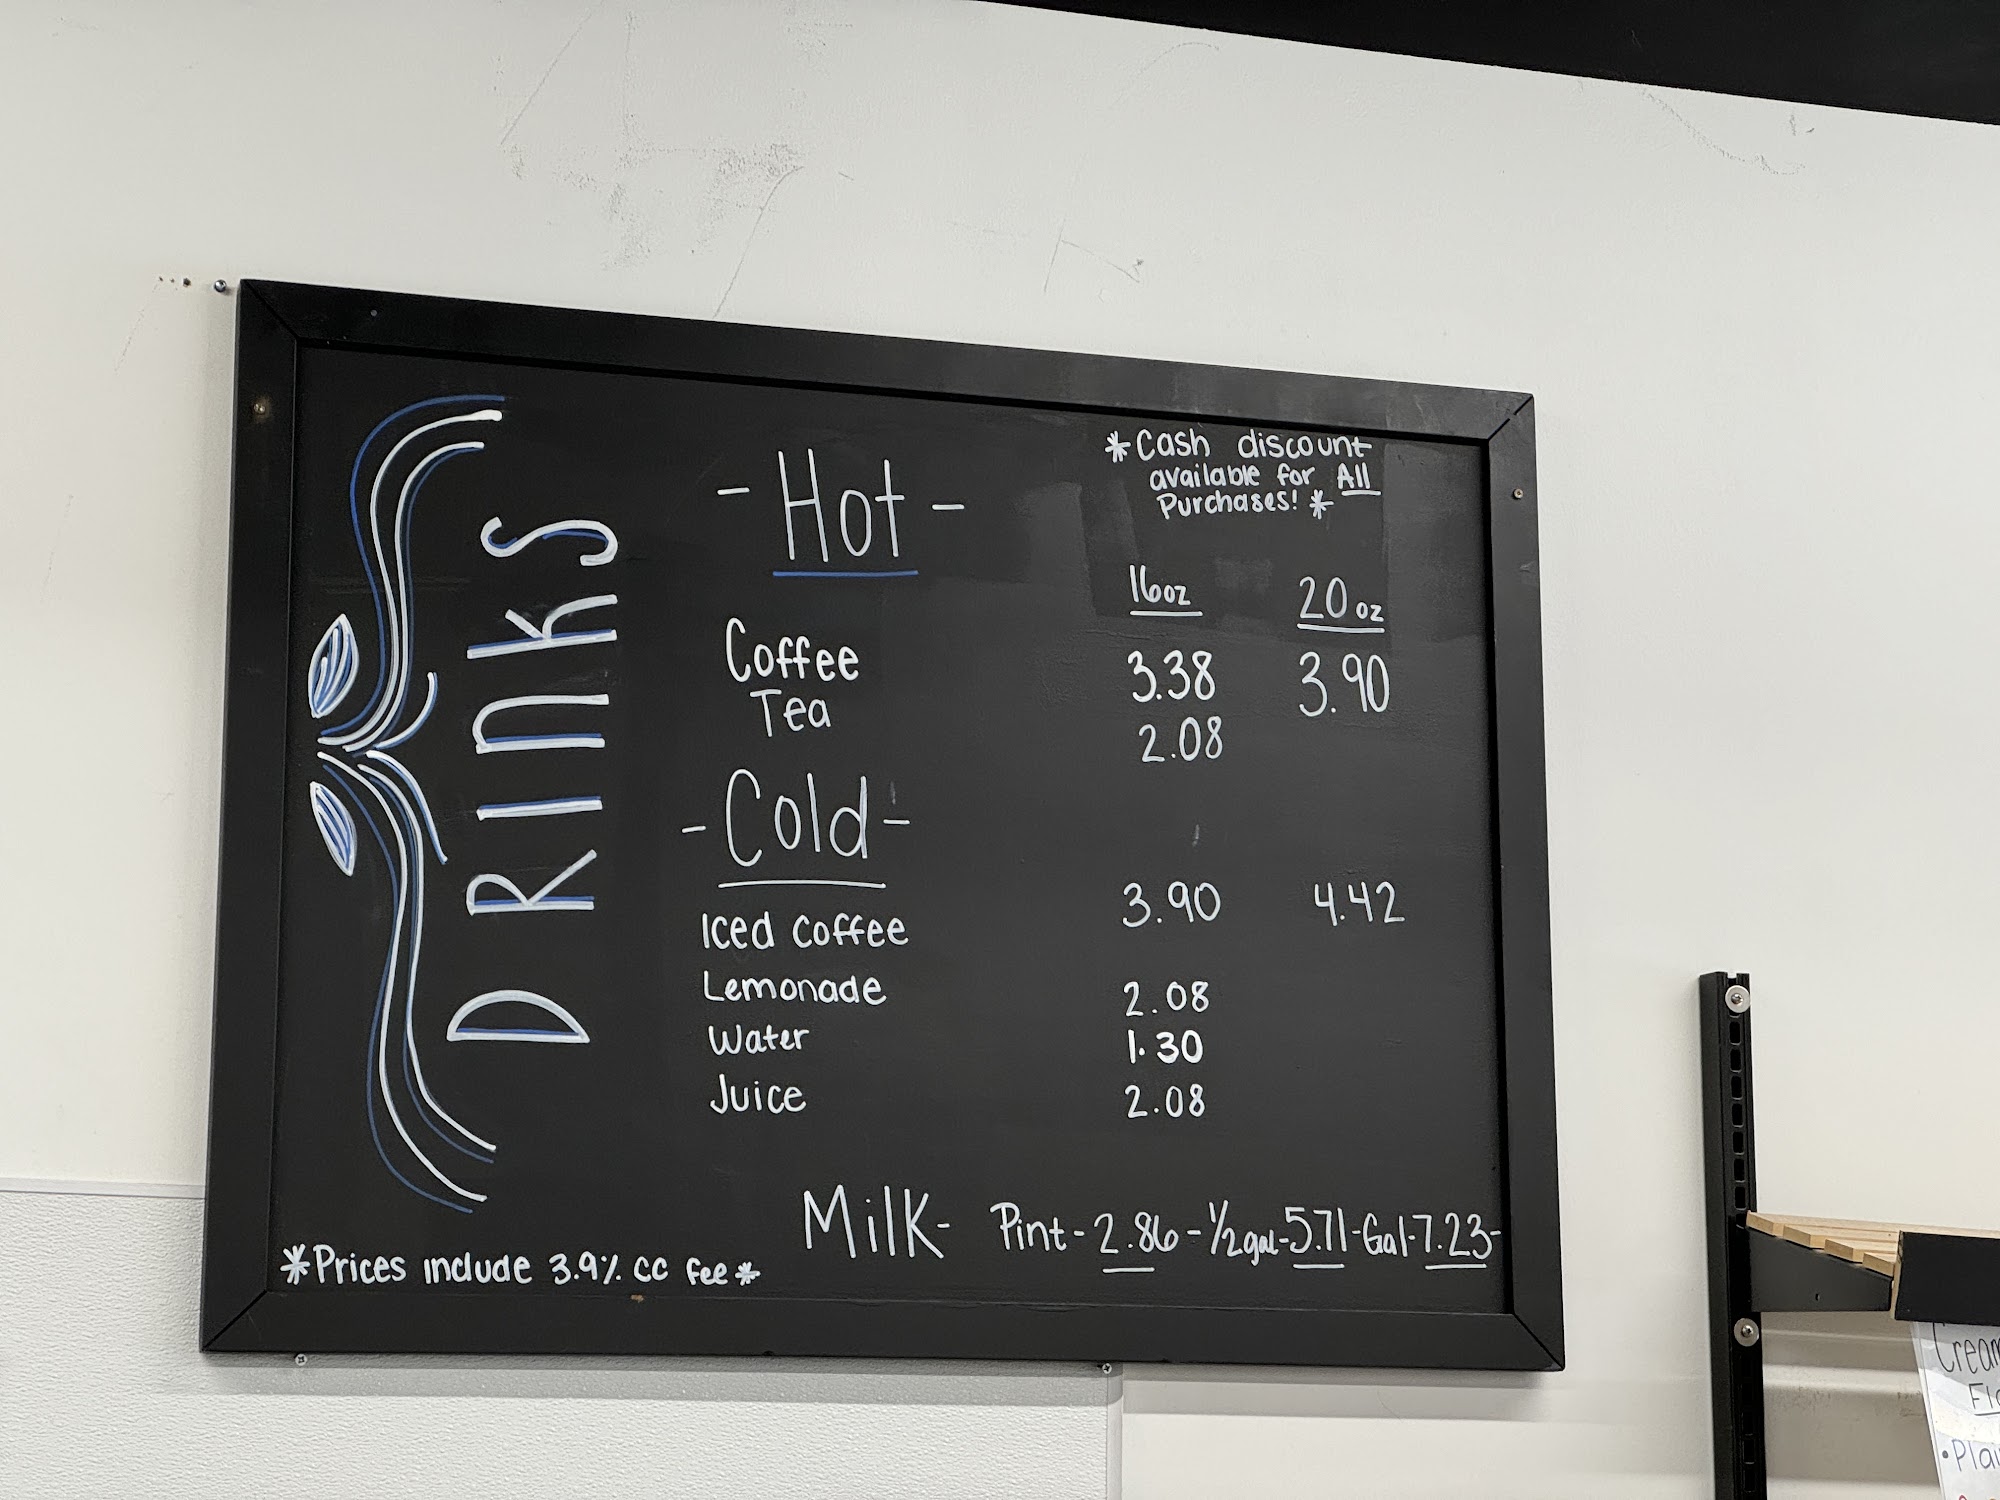 DRINKS
*Cash discount
available for All
Purchases! *
- Hot -
16oz 20oz
Coffee 3.38 3.90
Tea 2.08
- Cold -
Iced Coffee 3.90 4.42
Lemonade 2.08
Water 1.30
Juice 2.08
Milk- Pint-2.86-1/2gal-5.71-Gal-7.23-
*Prices include 3.9% CC fee*
Cream
• Plai